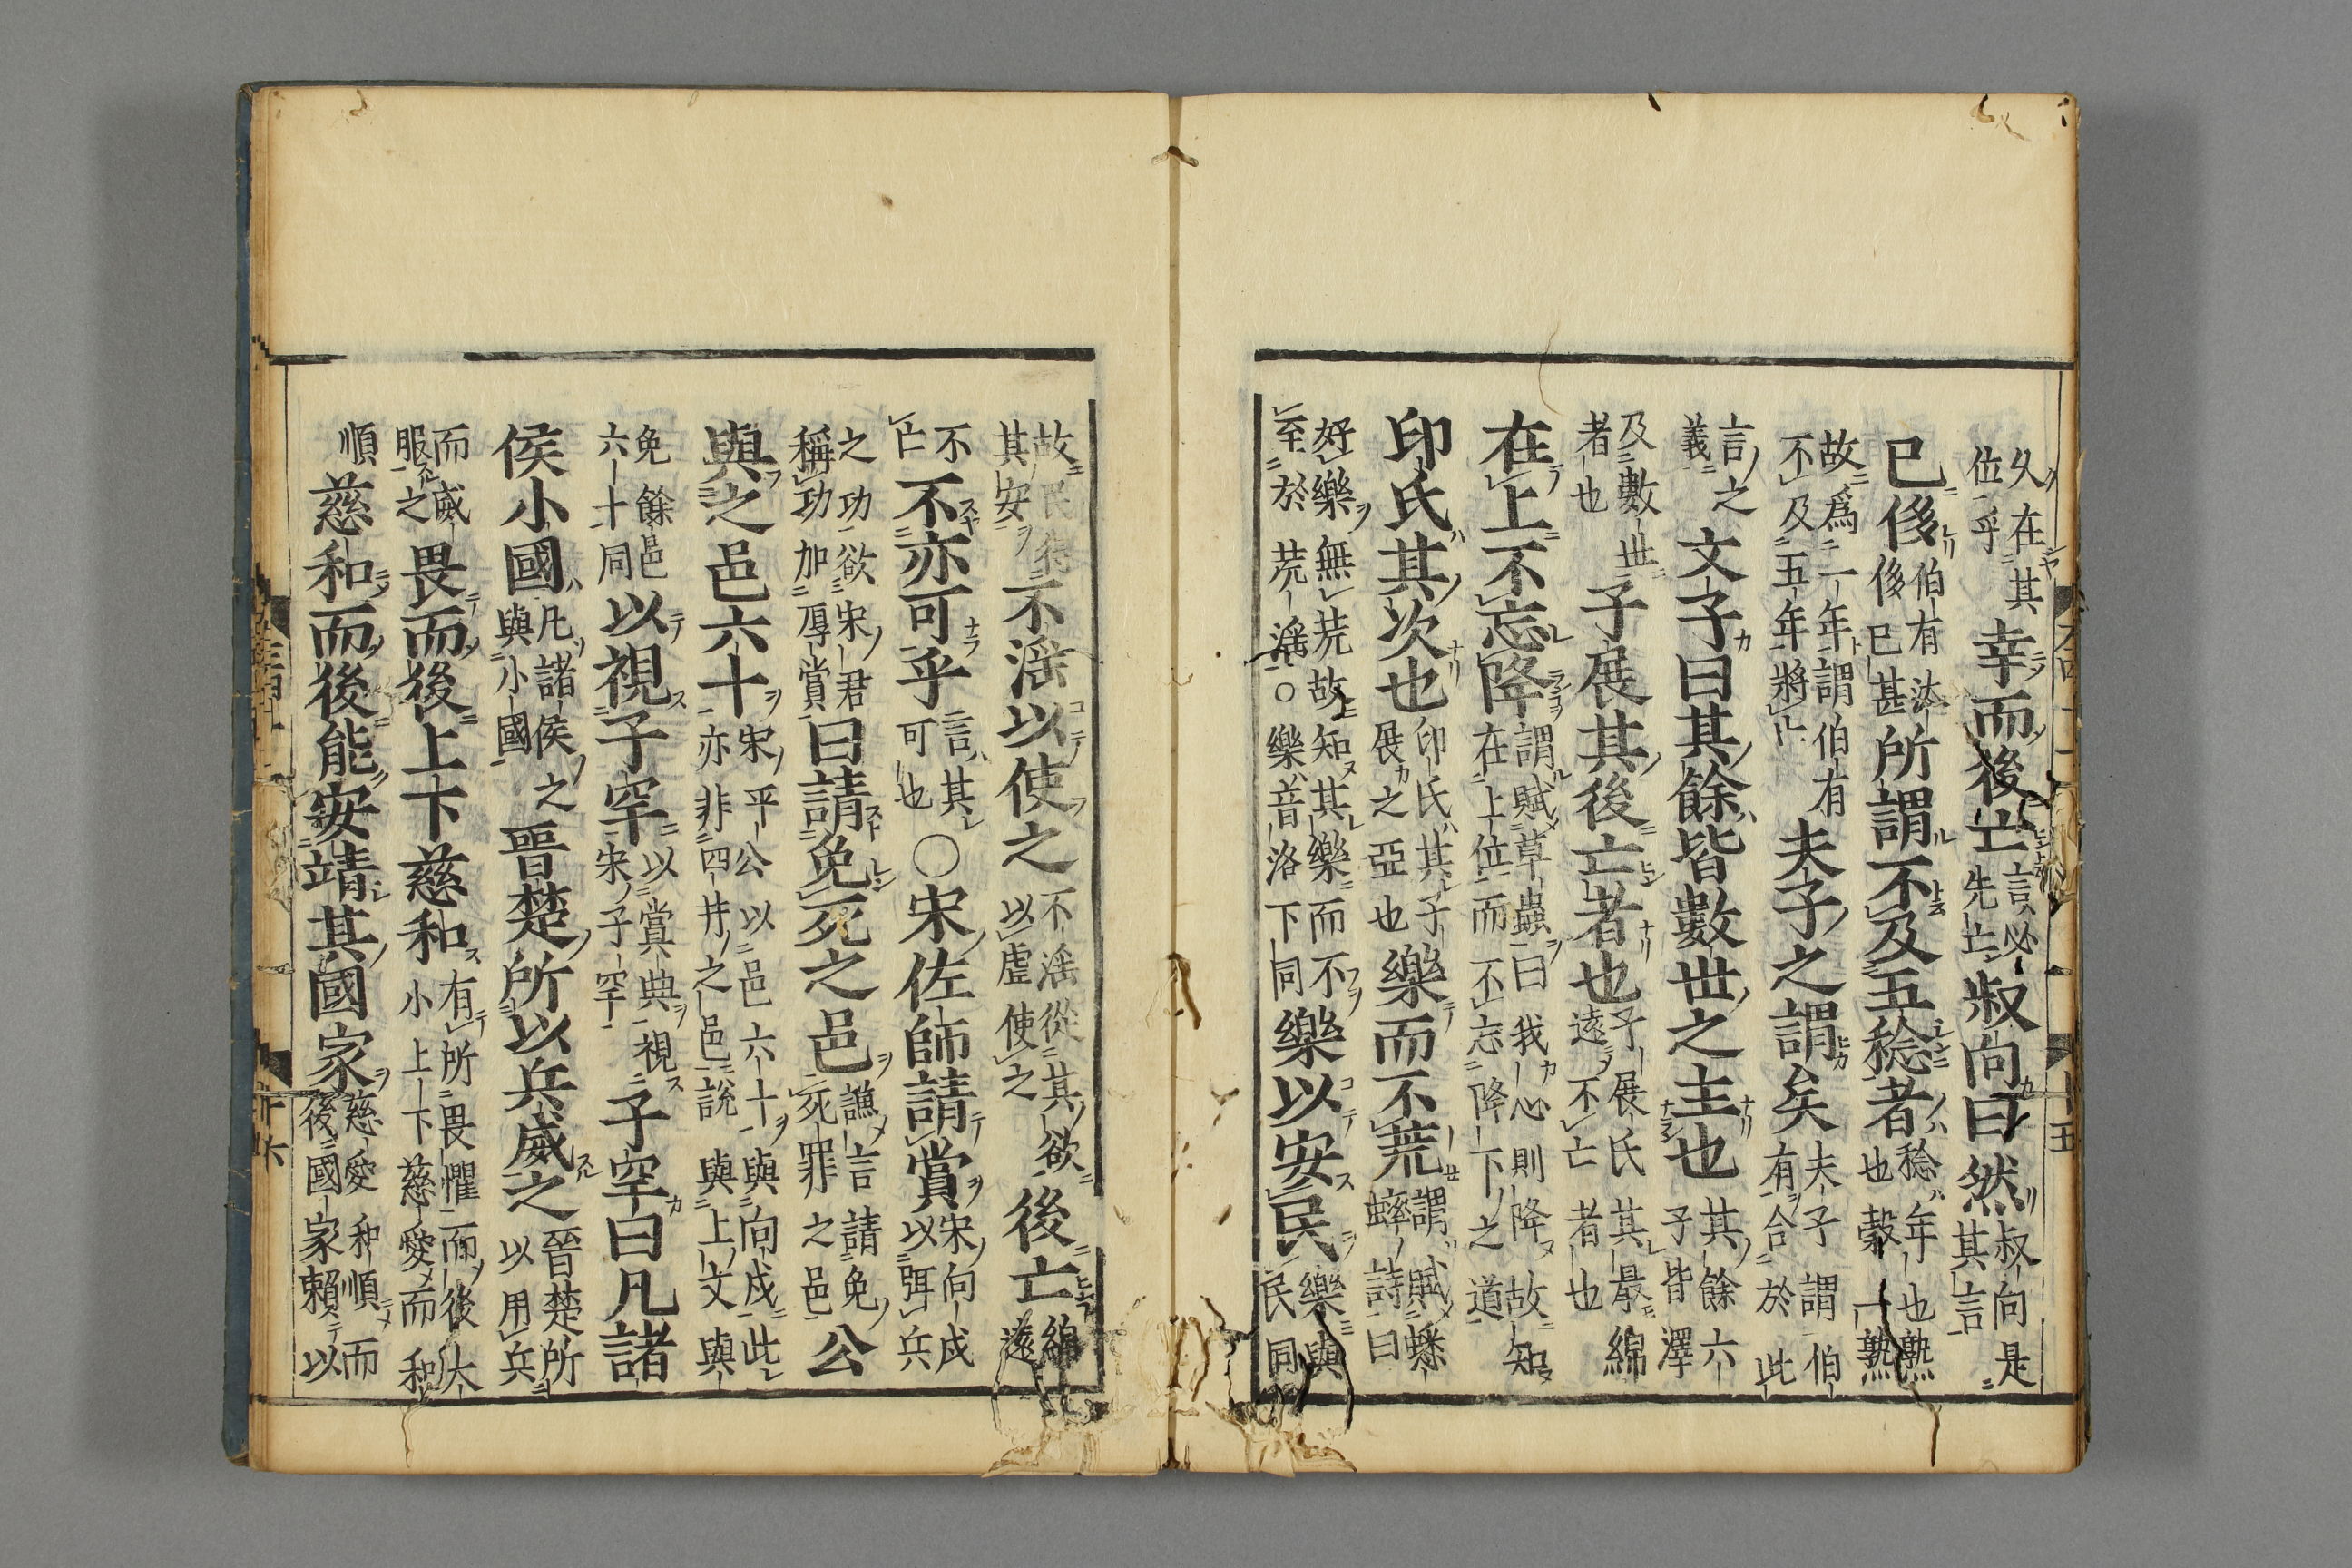 久在其位乎幸而後亡言必先亡叔向曰然叔向是其言
已侈伯有汰侈已甚所謂不及五稔者稔年也熟也穀一熟
故爲二年謂伯有不及五年將亡夫子之謂矣夫子謂伯有合於此
言之義文子曰其餘皆數世之主也其餘六子皆澤
及數世者也子展其後亡者也子展氏其最綿遠不亡者也
在上不忘降謂賦草蟲曰我心則降故知在上位而不忘降下之道
印氏其次也印氏其子展之亞也樂而不荒謂賦蟋蟀詩曰
好樂無荒故知其樂而不至於荒淫○樂音洛下同樂以安民樂與民同
故民得其安不淫以使之不淫從其欲以虐使之後亡綿遠
不亡不亦可乎言其可也○宋佐師請賞宋向戌以弭兵
之功欲宋君稱功加厚賞曰請免死之邑謙言請免死罪之邑公
與之邑六十宋平公以邑六十與向戌此亦非四井之邑說與上文與
免餘邑六十同以視子罕以賞典視宋子罕子罕曰凡諸
侯小國凡諸侯之與小國晉楚所以兵威之晉楚所以用兵
而威服之畏而後上下慈和有所畏懼而後大小上下慈愛而和
順慈和而後能安靖其國家慈愛和順而後國家賴以
十五